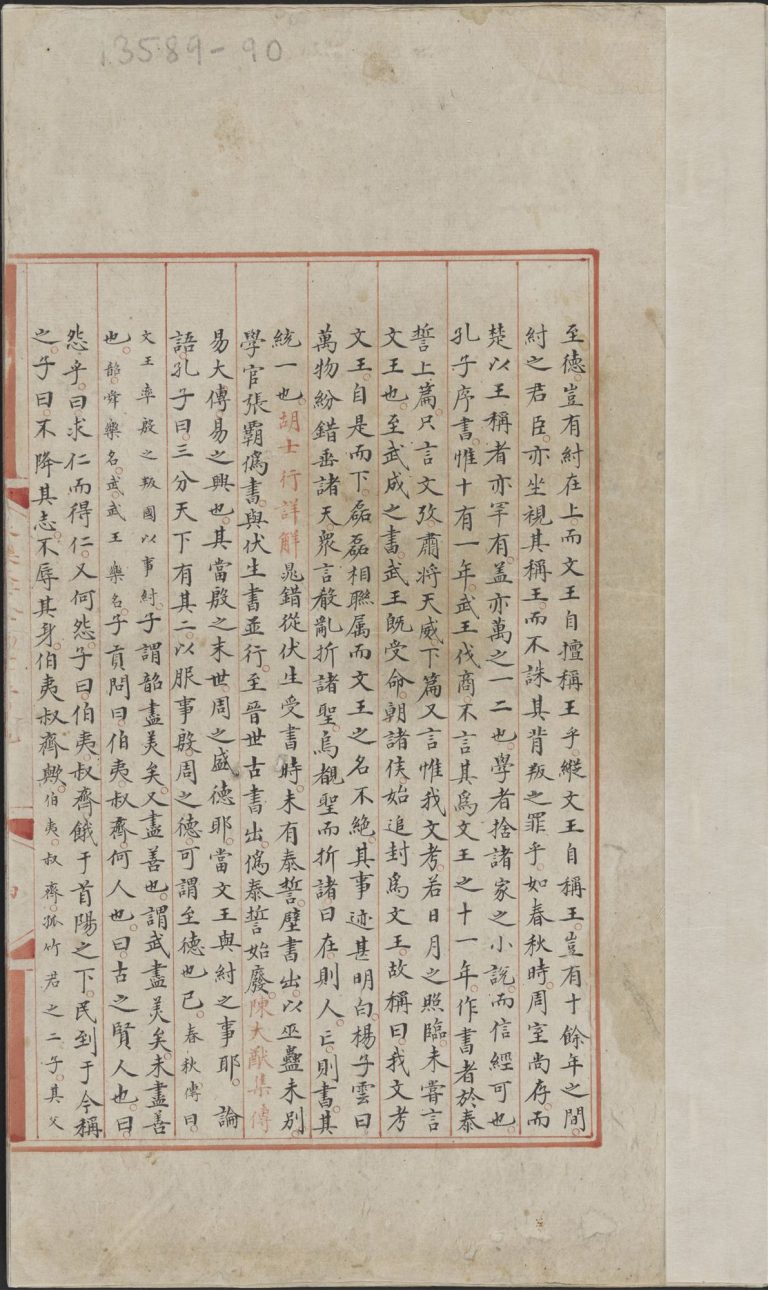 13589-90
至德。豈有紂在上。而文王自擅稱王乎。縱文王自稱王。豈有十餘年之間。
紂之君臣。亦坐視其稱王。而不誅其背叛之罪乎。如春秋時。周室尚存。而
楚以王稱者亦罕有。盖亦萬之一二也。學者捨諸家之小說。而信經可也。
孔子序書。惟十有一年。武王伐商。不言其爲文王之十一年。作書者於泰
誓上篇。只言文攷。肅将天威。下篇又言惟我文考。若日月之照臨。未嘗言
文王也。至武成之書。武王既受命。朝諸侯。始追封爲文王。故稱曰。我文考
文王。自是而下。磊磊相聯属而文王之名不絶。其事迹甚明白。楊子雲曰
萬物紛錯垂諸天。衆言殽亂折諸聖。烏覩聖而折諸曰在則人。亡則書。其
統一也。胡士行詳解晁錯從伏生受書時。未有泰誓。壁書出。以巫蠱未別。
學官張霸僞書。與伏生書並行。至晉世古書出。僞泰誓始廢。陳大猷集傳
易大傳。易之興也。其當殷之末世。周之盛德耶。當文王與紂之事耶。論
語。孔子曰。三分天下有其二。以服事殷。周之德。可謂至德也已。春秋傳曰。
文王率殷之叛國以事紂。子謂韶盡美矣。又盡善也。謂武盡美矣。未盡善
也。韶。舜樂名。武。武王樂名。子貢問曰。伯夷叔齊。何人也。曰。古之賢人也。曰。
怨乎。曰求仁而得仁。又何怨。子曰。伯夷。叔齊。餓于首陽之下。民到于今稱
之。子曰。不降其志。不辱其身。伯夷叔齊歟。伯夷。叔齊。孤竹君之二子。其父